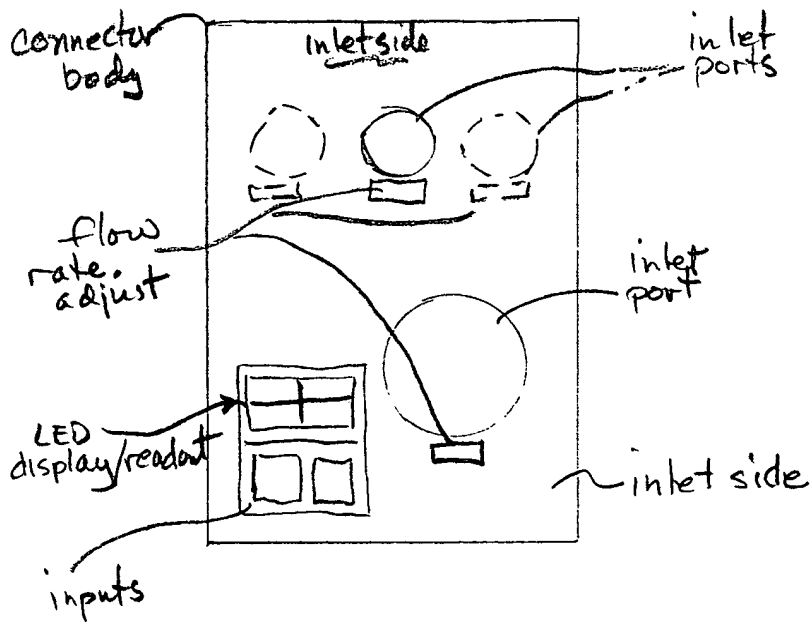 connector
body
inlet side
inlet
ports
flow
rate
adjust
inlet
port
LED
display/readout
inlet side
inputs